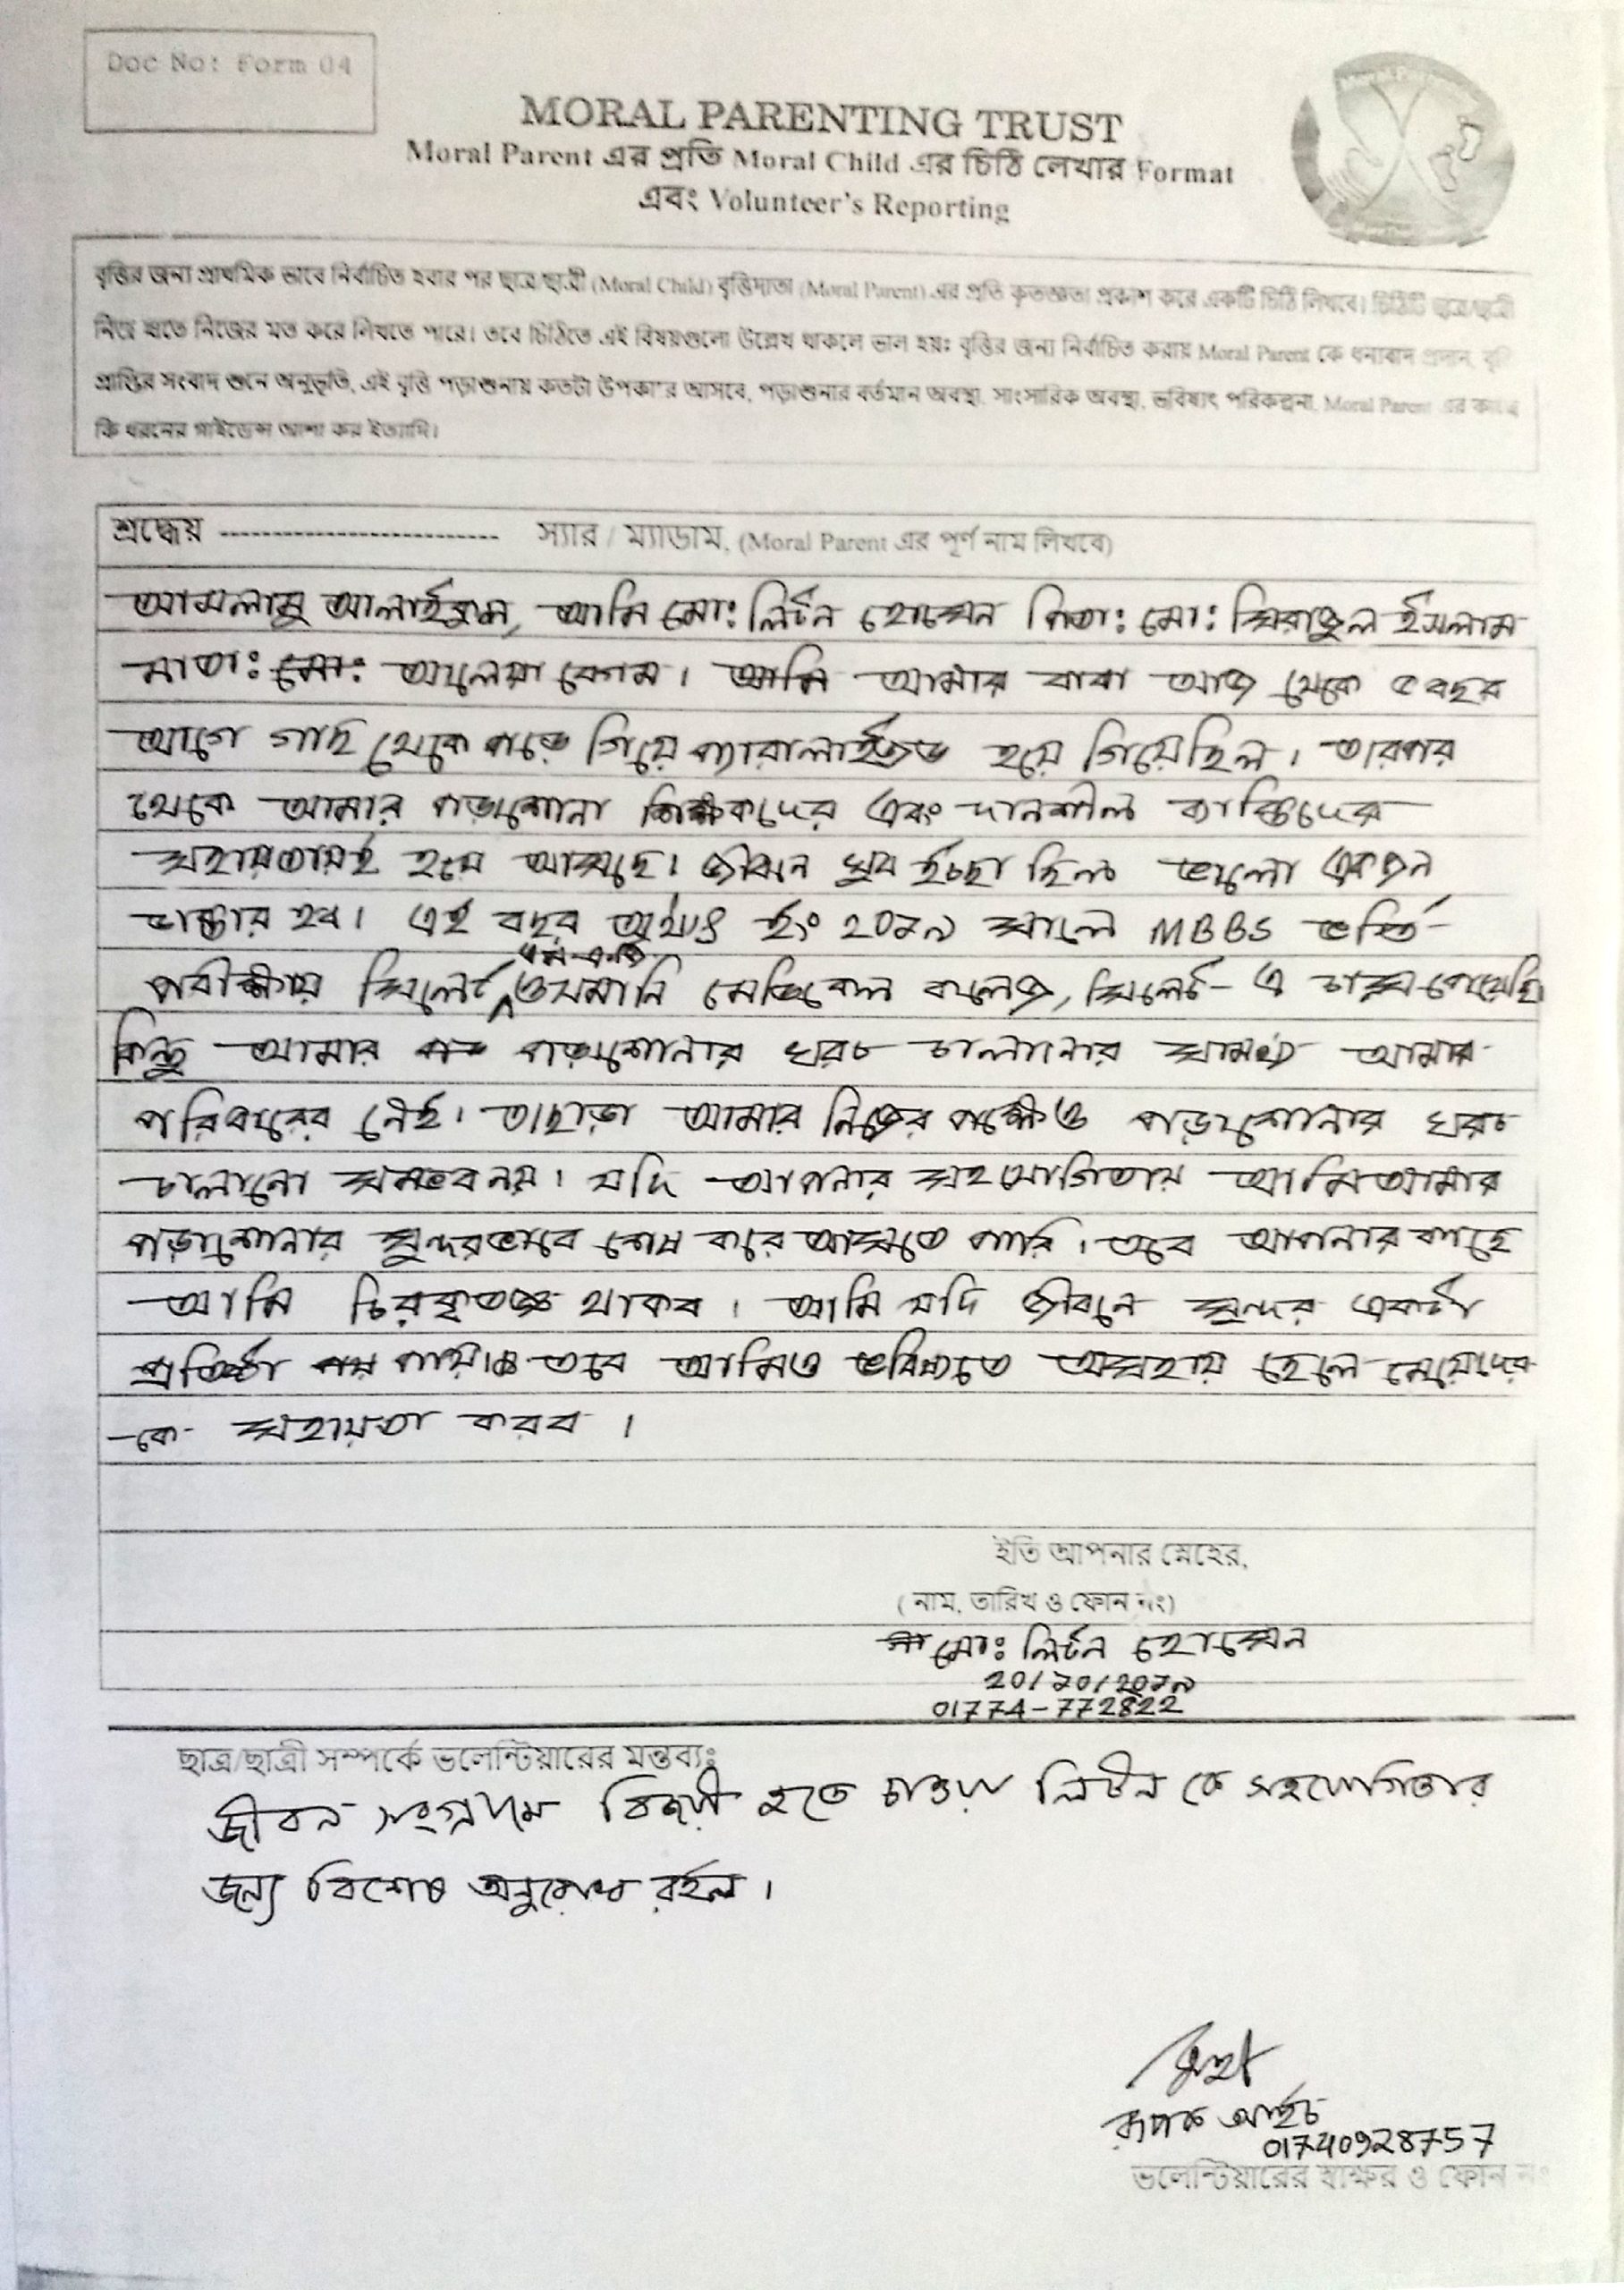 Doc No: Form 04
MORAL PARENTING TRUST
Moral Parent এর প্রতি Moral Child এর চিঠি লেখার Format
এবং Volunteer's Reporting
বৃত্তির জন্য প্রাথমিক ভাবে নির্বাচিত হবার পর ছাত্র/ছাত্রী (Moral Child) বৃত্তিদাতা (Moral Parent) এর প্রতি কৃতজ্ঞতা প্রকাশ করে একটি চিঠি লিখবে। চিঠিটি ছাত্র/ছাত্রী
নিজ হাতে নিজের মত করে লিখতে পারে। তবে চিঠিতে এই বিষয়গুলো উল্লেখ থাকলে ভাল হয়ঃ বৃত্তির জন্য নির্বাচিত করায় Moral Parent কে ধন্যবাদ প্রদান, বৃত্তি
প্রাপ্তির সংবাদ শুনে অনুভূতি, এই বৃত্তি পড়াশুনায় কতটা উপকার আসবে, পড়াশুনার বর্তমান অবস্থা, সাংসারিক অবস্থা, ভবিষ্যৎ পরিকল্পনা, Moral Parent এর কাছে
কি ধরনের গাইডেন্স আশা কর ইত্যাদি।
শ্রদ্ধেয় -------------------------- স্যার / ম্যাডাম, (Moral Parent এর পূর্ণ নাম লিখবে)
আসলামু আলাইকুম, আমি মো: লিটন হোসেন পিতা: মো: সিরাজুল ইসলাম
মাতা: আলেয়া বেগম। আমার বাবা আজ থেকে ৫ বছর
আগে গাছ থেকে পড়ে গিয়ে প্যারালাইজড হয়ে গিয়েছিল। তারপর
থেকে আমার পড়াশোনা শিক্ষকদের এবং দানশীল ব্যক্তিদের
সহায়তায়ই হয়ে আসছে। জীবনে খুব ইচ্ছা ছিল ভালো একজন
ডাক্তার হব। এই বছর অর্থাৎ ইং ২০১৯ সালে MBBS ভর্তি
পরীক্ষায় সিলেট এম.এ.জি ওসমানি মেডিকেল কলেজ, সিলেট-এ চান্স পেয়েছি
কিন্তু আমার পড়াশোনার খরচ চালানোর সামর্থ্য আমার
পরিবারের নেই। তাছাড়া আমার নিজের পক্ষেও পড়াশোনার খরচ
চালানো সম্ভব নয়। যদি আপনার সহযোগিতায় আমি আমার
পড়াশোনার সুন্দরভাবে শেষ করে আসতে পারি। তবে আপনার কাছে
আমি চিরকৃতজ্ঞ থাকব। আমি যদি জীবনে সুন্দর একটা
প্রতিষ্ঠা পায়। তবে আমিও ভবিষ্যতে অসহায় ছেলে মেয়েদের
-কে সহায়তা করব।
ইতি আপনার স্নেহের,
( নাম, তারিখ ও ফোন নং)
মো: লিটন হোসেন
20/১০/২০১৯
01774-772822
ছাত্র/ছাত্রী সম্পর্কে ভলেন্টিয়ারের মন্তব্যঃ
জীবন সংগ্রামে বিজয়ী হতে চাওয়া লিটন কে সহযোগিতার
জন্য বিশেষ অনুরোধ রইল।
01740928757
ভলেন্টিয়ারের স্বাক্ষর ও ফোন নং